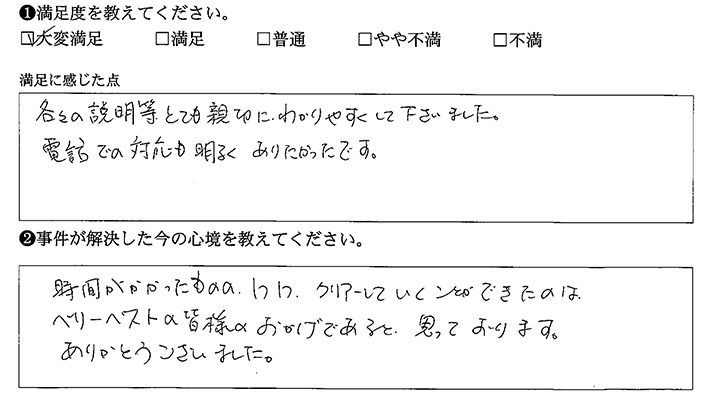 ❶満足度を教えてください。
☑大変満足 □満足 □普通 □やや不満 □不満
満足に感じた点
各々の説明等とても親切に、わかりやすくして下さいました。
電話での対応も明るく ありたかったです。
❷事件が解決した今の心境を教えてください。
時間がかかったものの、1つ1つ、クリアーしていくことができたのは、
ベリーベストの皆様のおかげであると、思っております。
ありがとうございました。